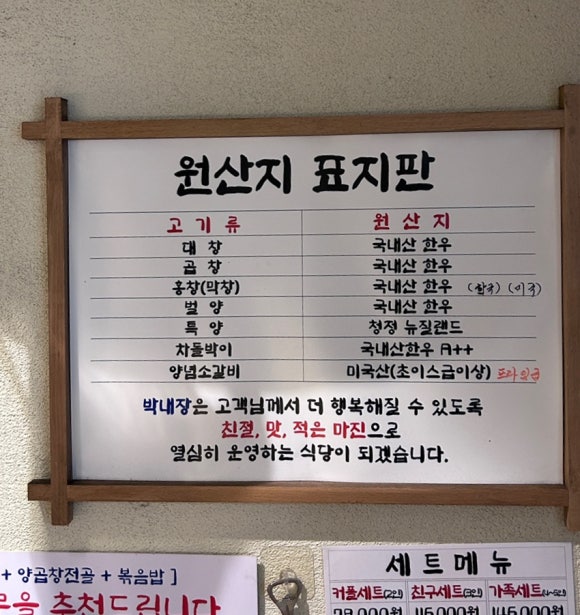 원산지 표지판
고기류 원산지
대창 국내산 한우
곱창 국내산 한우
홍창(막창) 국내산 한우 (한국) (미국)
벌양 국내산 한우
특양 청정 뉴질랜드
차돌박이 국내산한우 A++
양념소갈비 미국산(초이스급이상)
박내장은 고객님께서 더 행복해질 수 있도록
친절, 맛, 적은 마진으로
열심히 운영하는 식당이 되겠습니다.
+ 양곱창전골 + 볶음밥 ]
추천드립니다
세트메뉴
커플세트(2인) 친구세트(3인) 가족세트(4~5인)